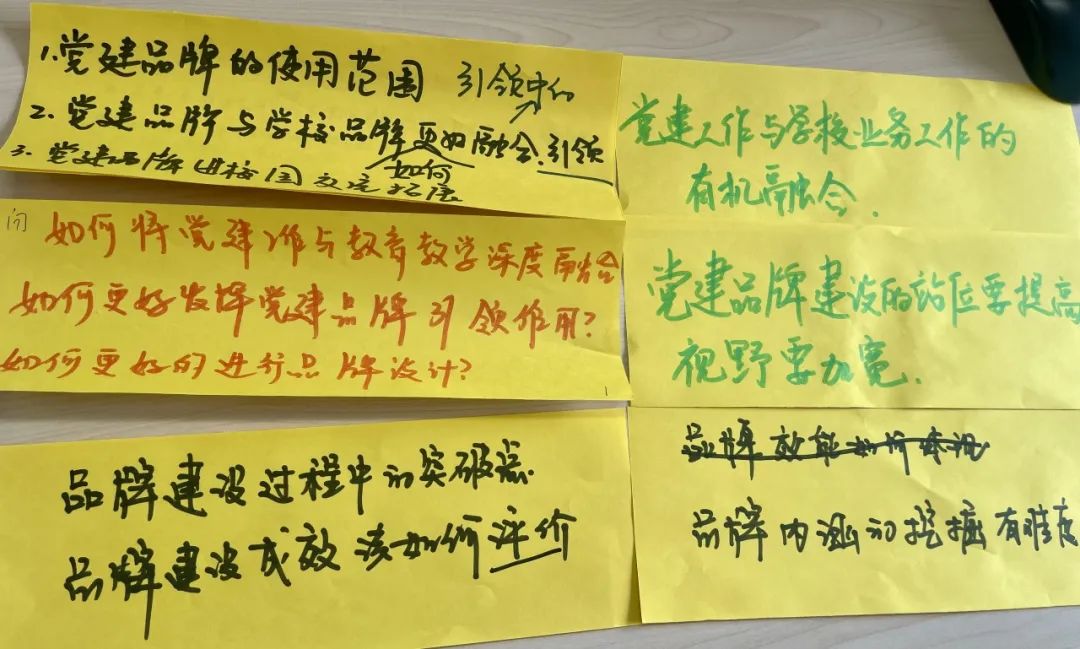 1.党建品牌的使用范围
引领中的
2.党建品牌与学校品牌更好融合.引领
如何
3.党建品牌进校园交流拓展
问
如何将党建工作与教育教学深度融合
如何更好发挥党建品牌引领作用?
如何更好的进行品牌设计?
品牌建设过程中的突破点.
品牌建设成效该如何评价
党建工作与学校业务工作的
有机融合.
党建品牌建设的站位要提高
视野要加宽.
品牌效能如何体现
品牌内涵的挖掘有难度